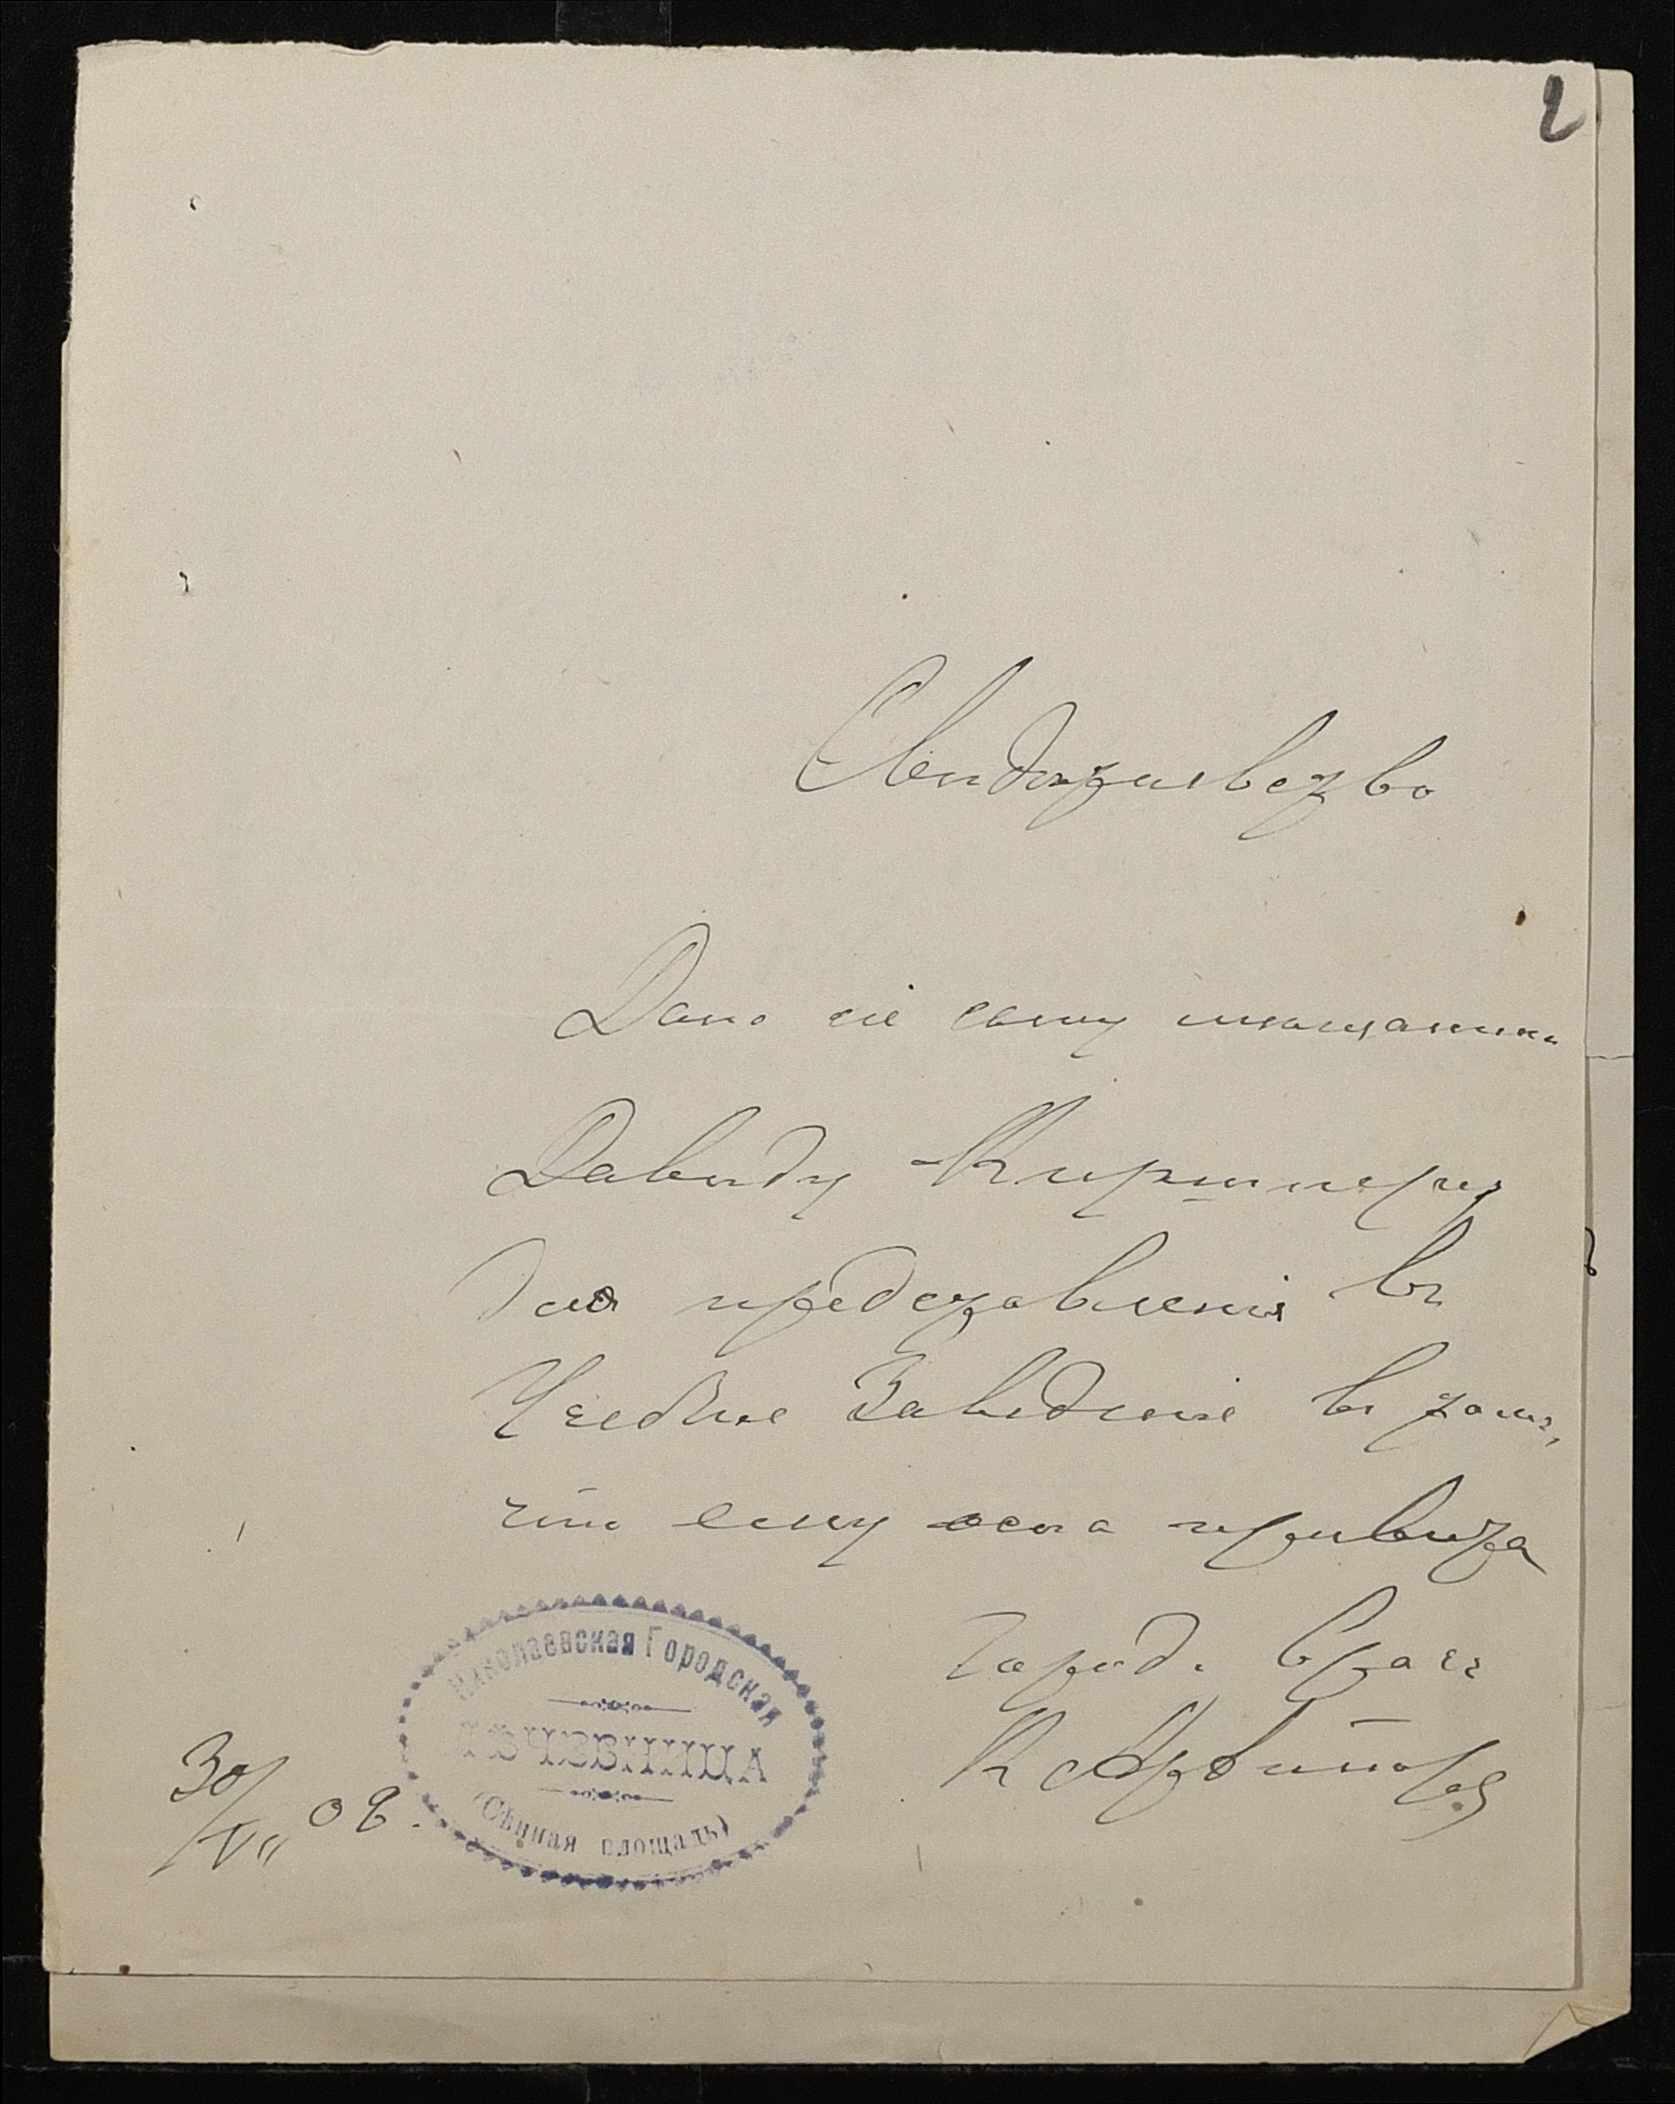 2
Свидѣтельство
Дано сіе сыну мѣщанина
Давиду Киршнеру
для представленія въ
Учебное Заведеніе въ томъ,
что ему оспа привита
Город. Врачъ
30/VII 08.
Николаевская Городская
ЛЕЧЕБНИЦА
(Сѣнная площадь)